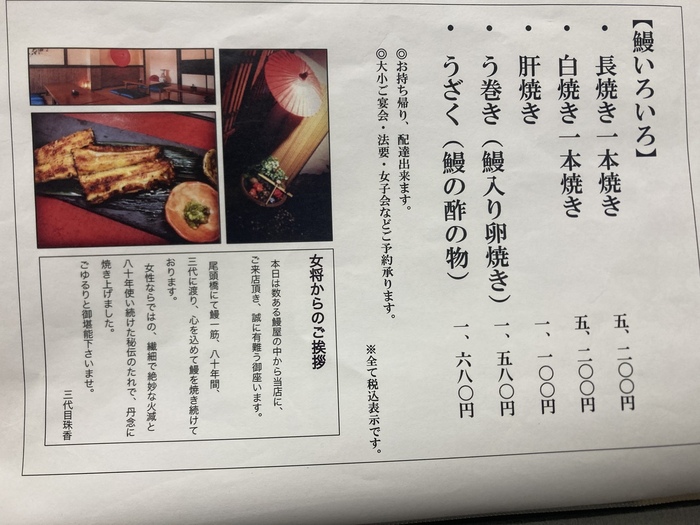 【鰻いろいろ】
・長焼き一本焼き 五、二〇〇円
・白焼き一本焼き 五、二〇〇円
・肝焼き 一、一〇〇円
・う巻き（鰻入り卵焼き） 一、五八〇円
・うざく（鰻の酢の物） 一、六八〇円
◎お持ち帰り、配達出来ます。
◎大小ご宴会・法要・女子会などご予約承ります。
※全て税込表示です。
女将からのご挨拶
本日は数ある鰻屋の中から当店に、
ご来店頂き、誠に有難う御座います。
尾頭橋にて鰻一筋、八十年間、
三代に渡り、心を込めて鰻を焼き続けて
おります。
女性ならではの、繊細で絶妙な火減と
八十年使い続けた秘伝のたれで、丹念に
焼き上げました。
ごゆるりと御堪能下さいませ。
三代目珠香